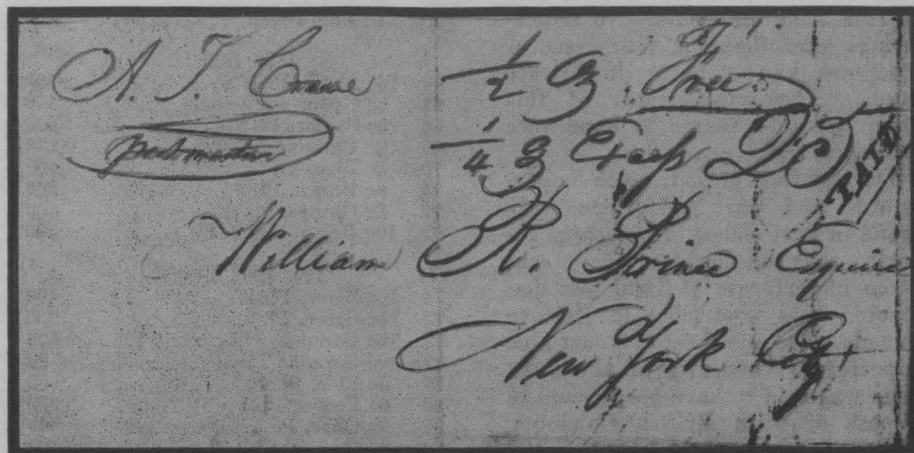 A. T. Crane
postmaster
1/2 oz. Free
1/4 oz Excess
PAID
William R. Prince Esquire
New York City